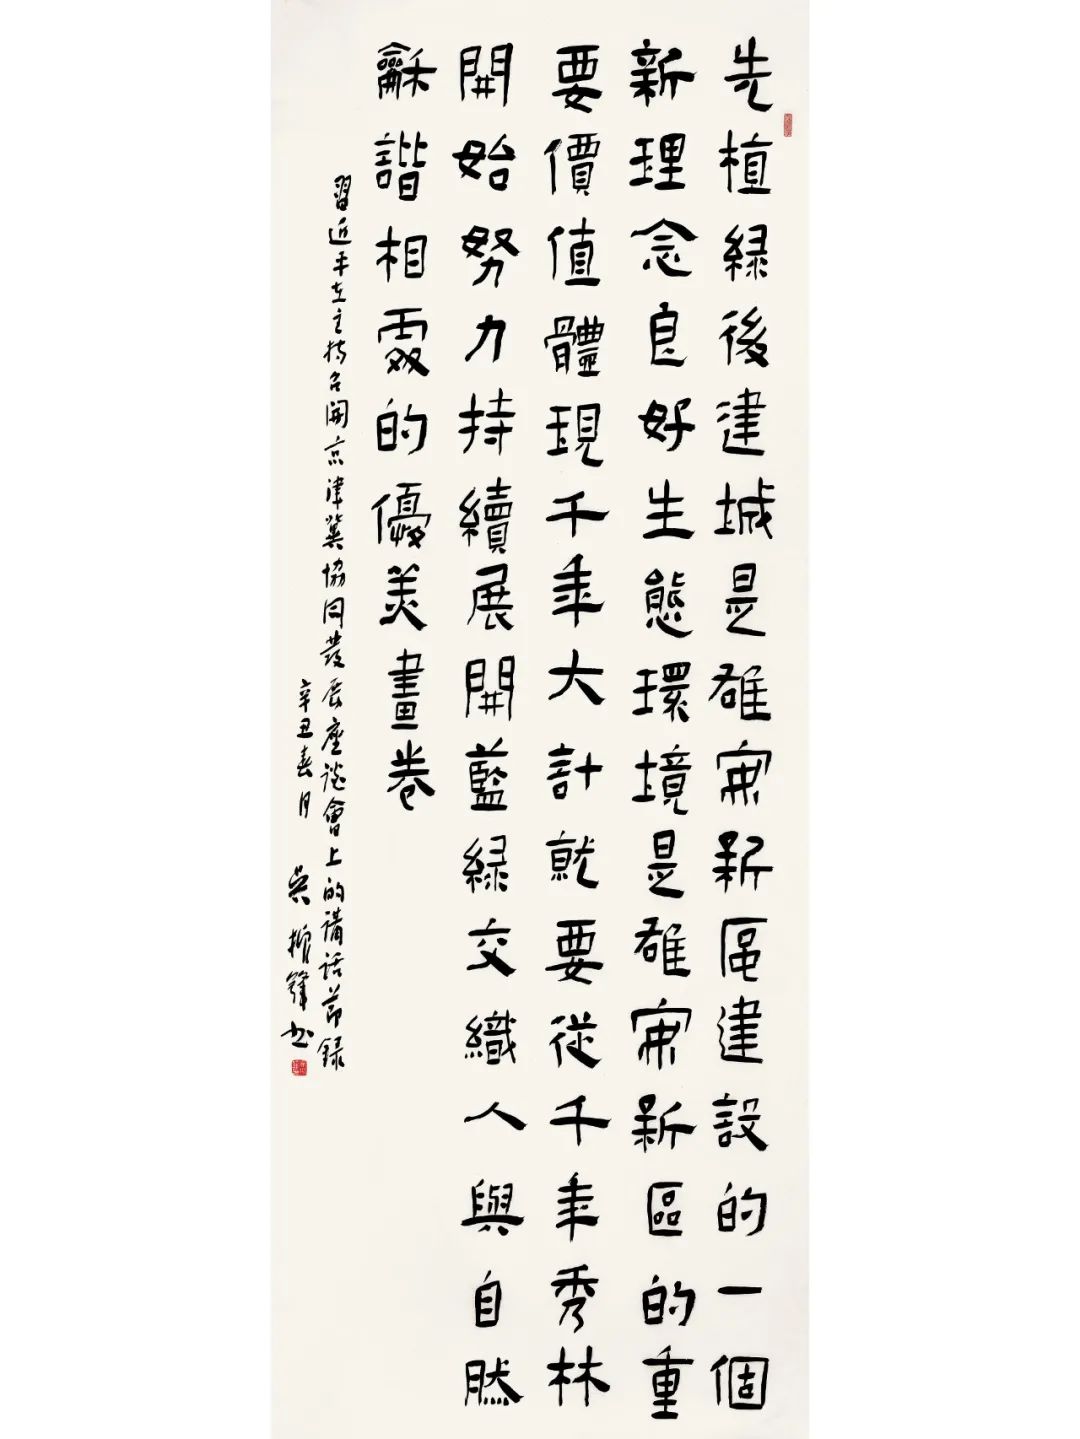 先植綠後建城是雄安新區建設的一個
新理念良好生態環境是雄安新區的重
要價值體現千年大計就要從千年秀林
開始努力持續展開藍綠交織人與自然
龢諧相處的優美畫卷
習近平在主持召開京津冀協同發展座談會上的講話節錄
辛丑春月
吳振鋒书